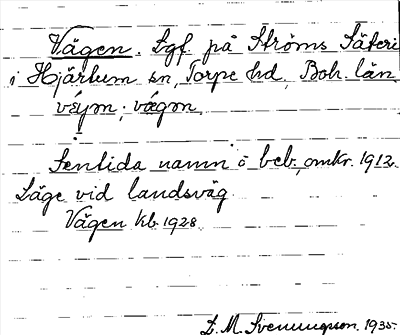 Vägen. Lgf. på Ströms Säteri
i Hjärtum sn, Torpe hd, Boh. län
vä́jm; vǽgm
Sentida namn å beb., omkr. 1912.
Läge vid landsväg.
Vägen kb 1928
D. M. Svenungsson. 1935.